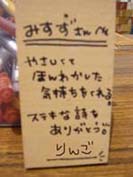 みすずさんへ
やさしくて
ほんわかした
気持ちをくれる。
ステキな詩を
ありがとう。
りんご